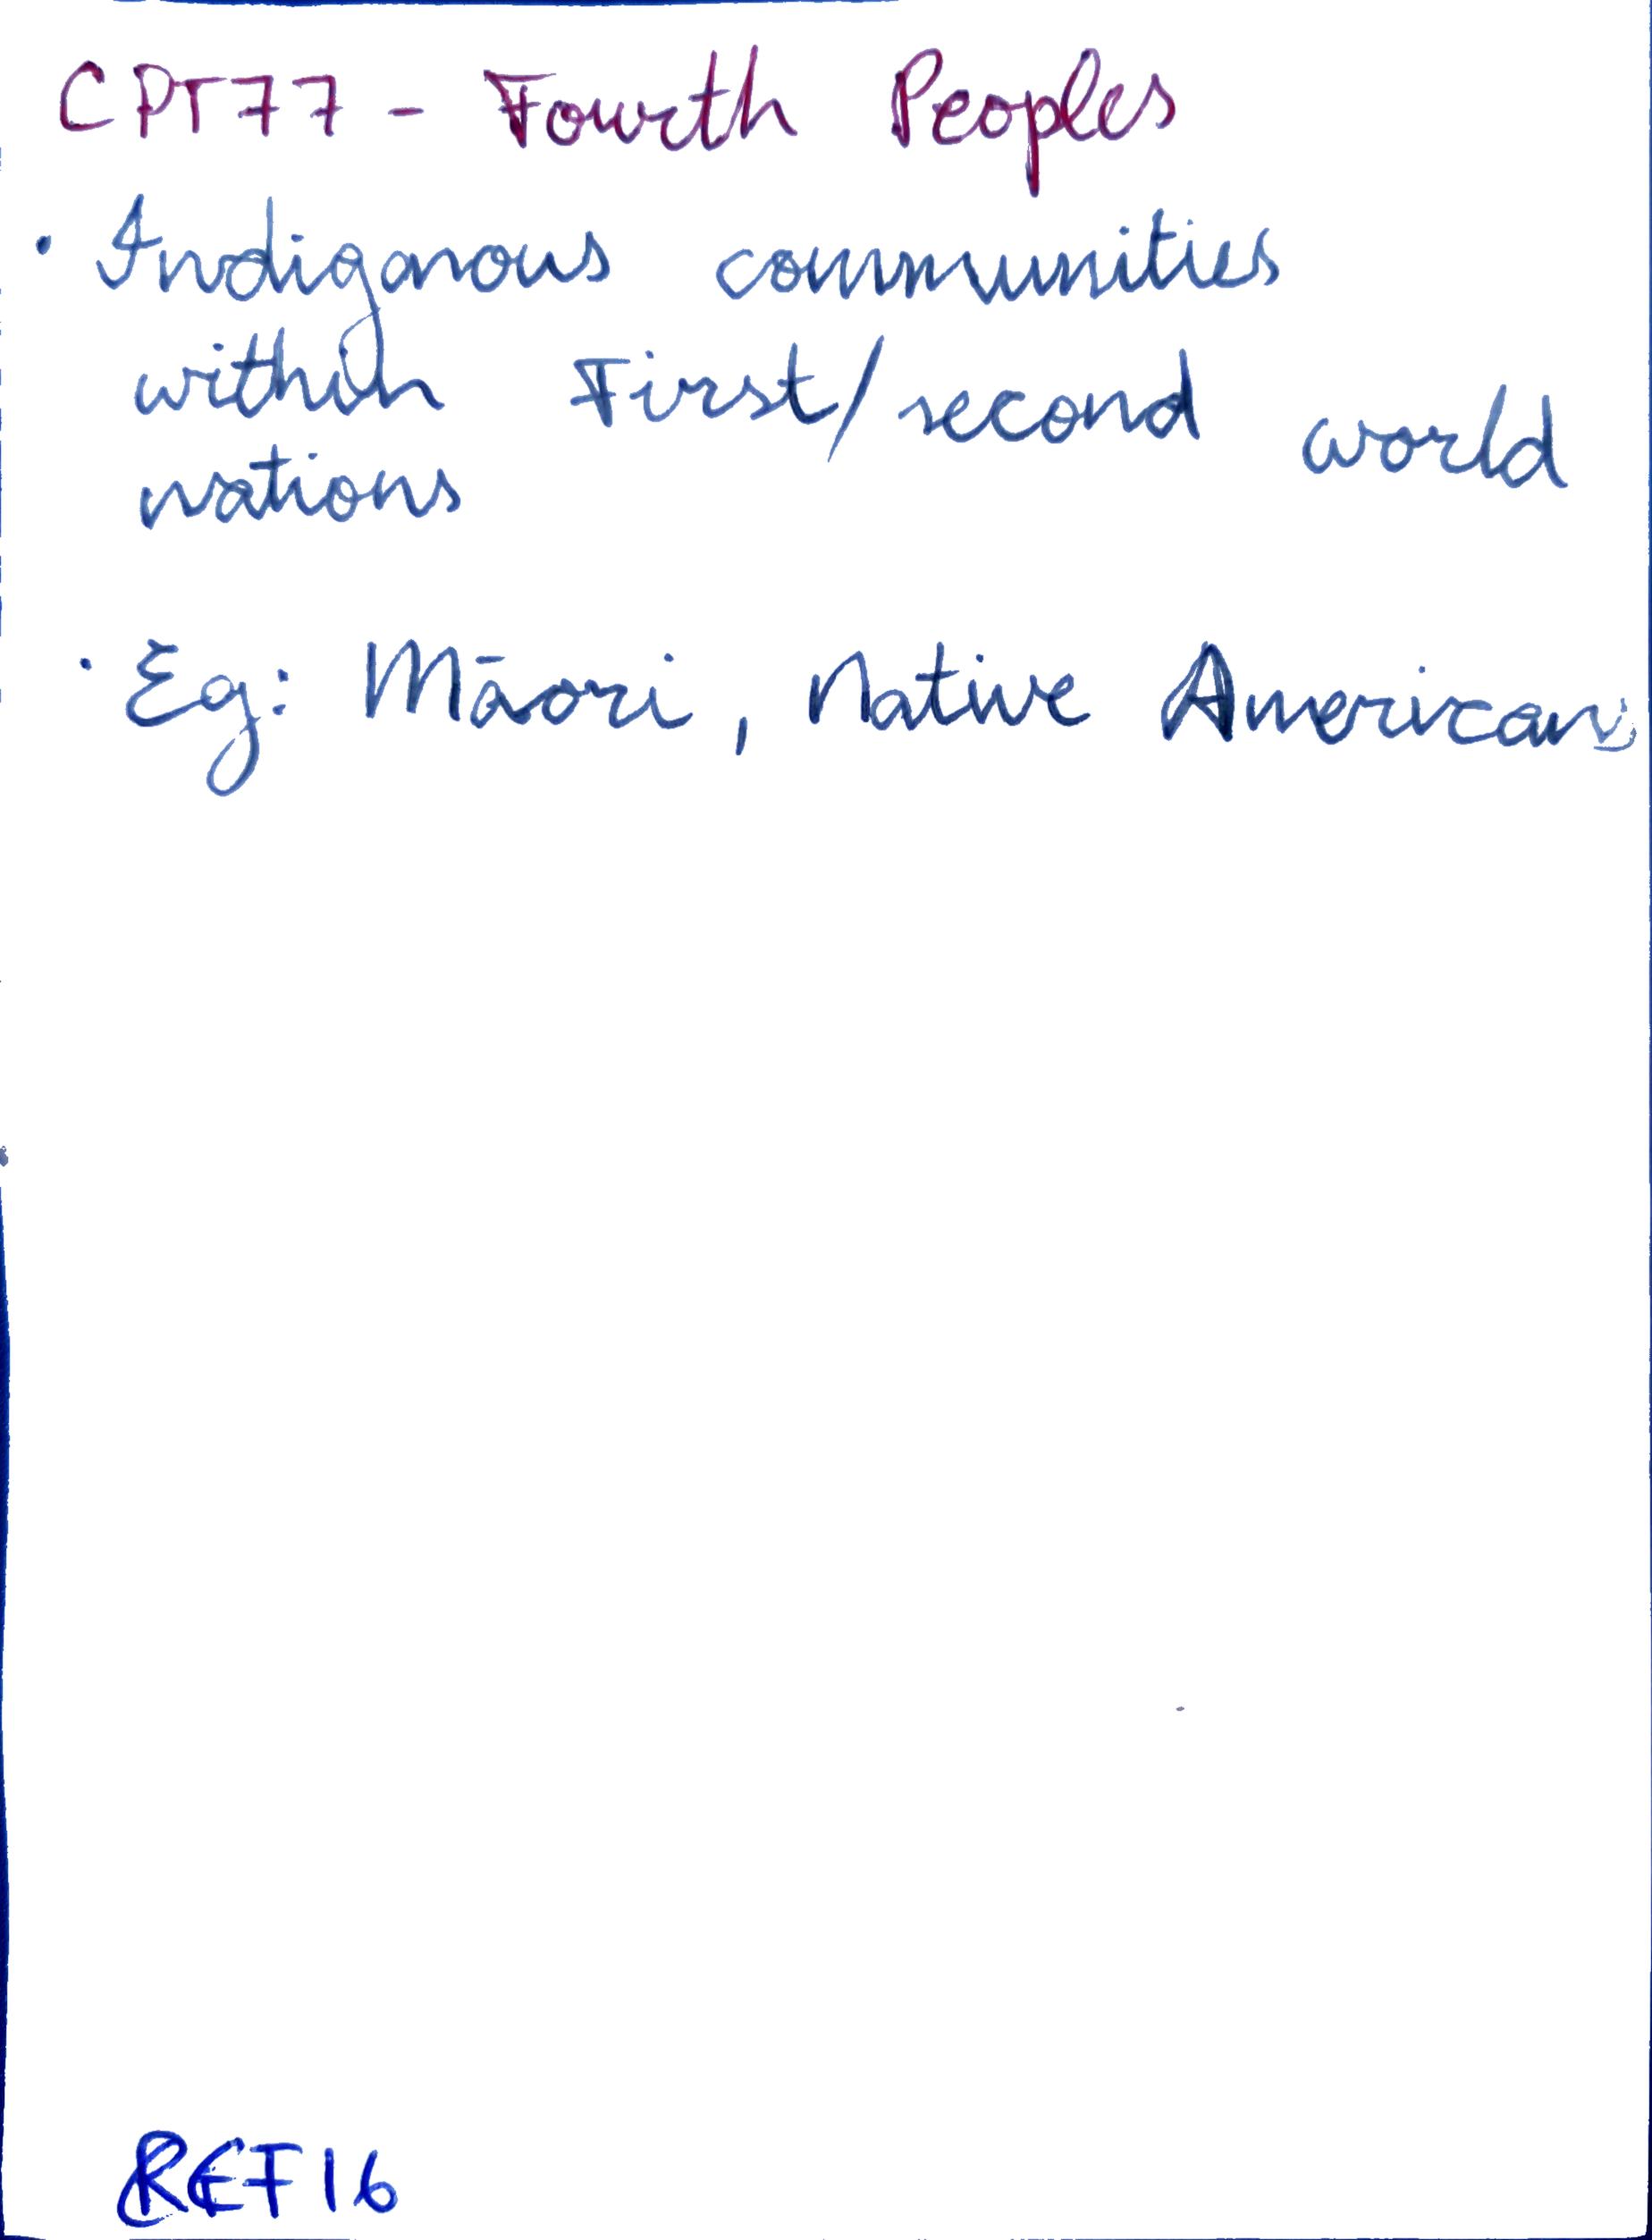 CPT77 - Fourth Peoples
• Indiganous communities
within First/second world
nations
• Eg: Māori, Native Americans
REF16